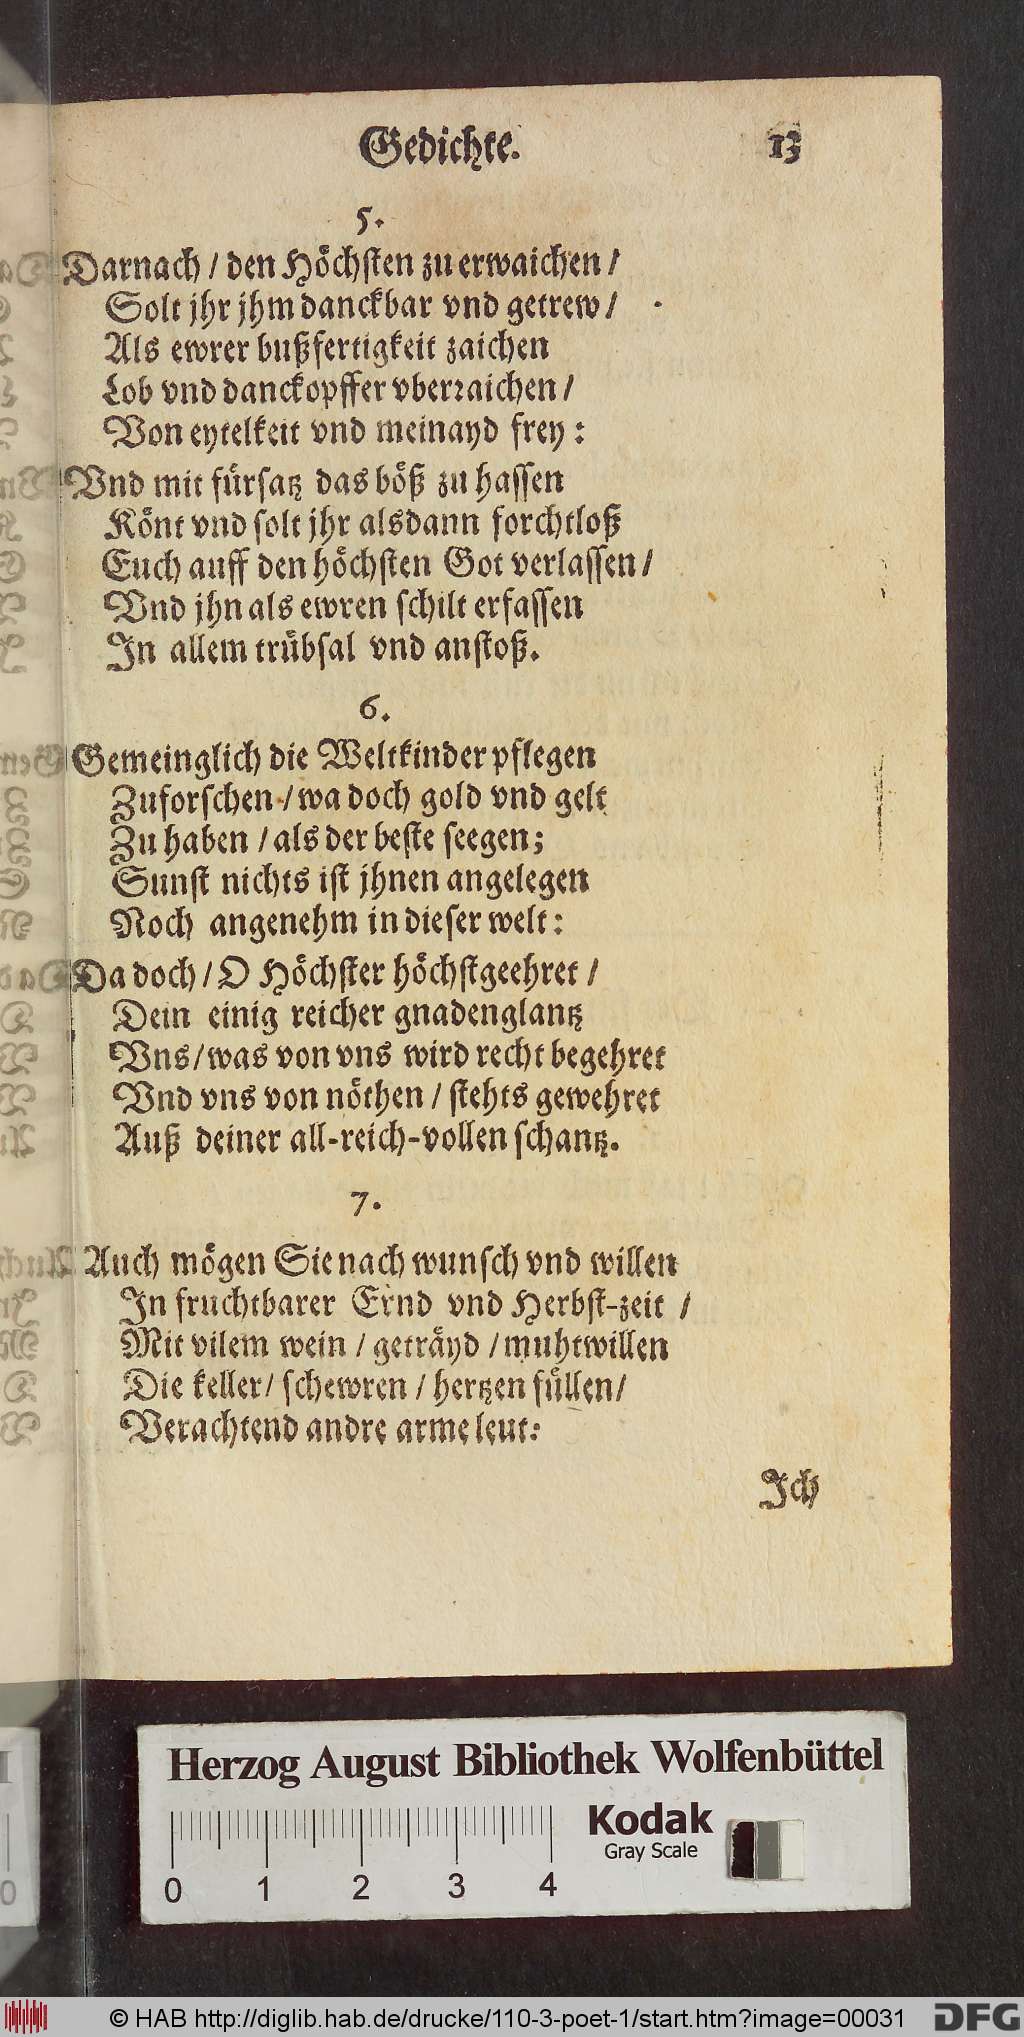 Gedichte. 13
5.
Darnach / den Höchsten zu erwaichen /
Solt jhr jhm danckbar vnd getrew /
Als ewrer bußfertigkeit zaichen
Lob vnd danckopffer vberraichen /
Von eytelkeit vnd meinayd frey :
Vnd mit fürsatz das böß zu hassen
Könt vnd solt jhr alsdann forchtloß
Euch auff den höchsten Got verlassen /
Vnd jhn als ewren schilt erfassen
In allem trübsal vnd anstoß.
6.
Gemeinglich die Weltkinder pflegen
Zuforschen / wa doch gold vnd gelt
Zu haben / als der beste seegen;
Sunst nichts ist jhnen angelegen
Noch angenehm in dieser welt:
Da doch / O Höchster höchstgeehret /
Dein einig reicher gnadenglantz
Vns/was von vns wird recht begehret
Vnd vns von nöthen / stehts gewehret
Auß deiner all-reich-vollen schantz.
7.
Auch mögen Sie nach wunsch vnd willen
In fruchtbarer Ernd vnd Herbst-zeit /
Mit vilem wein / geträyd / muhtwillen
Die keller/ schewren / hertzen füllen/
Verachtend andre arme leut:
Ich
Herzog August Bibliothek Wolfenbüttel
0 1 2 3 4
Kodak
Gray Scale
© HAB http://diglib.hab.de/drucke/110-3-poet-1/start.htm?image=00031
DFG